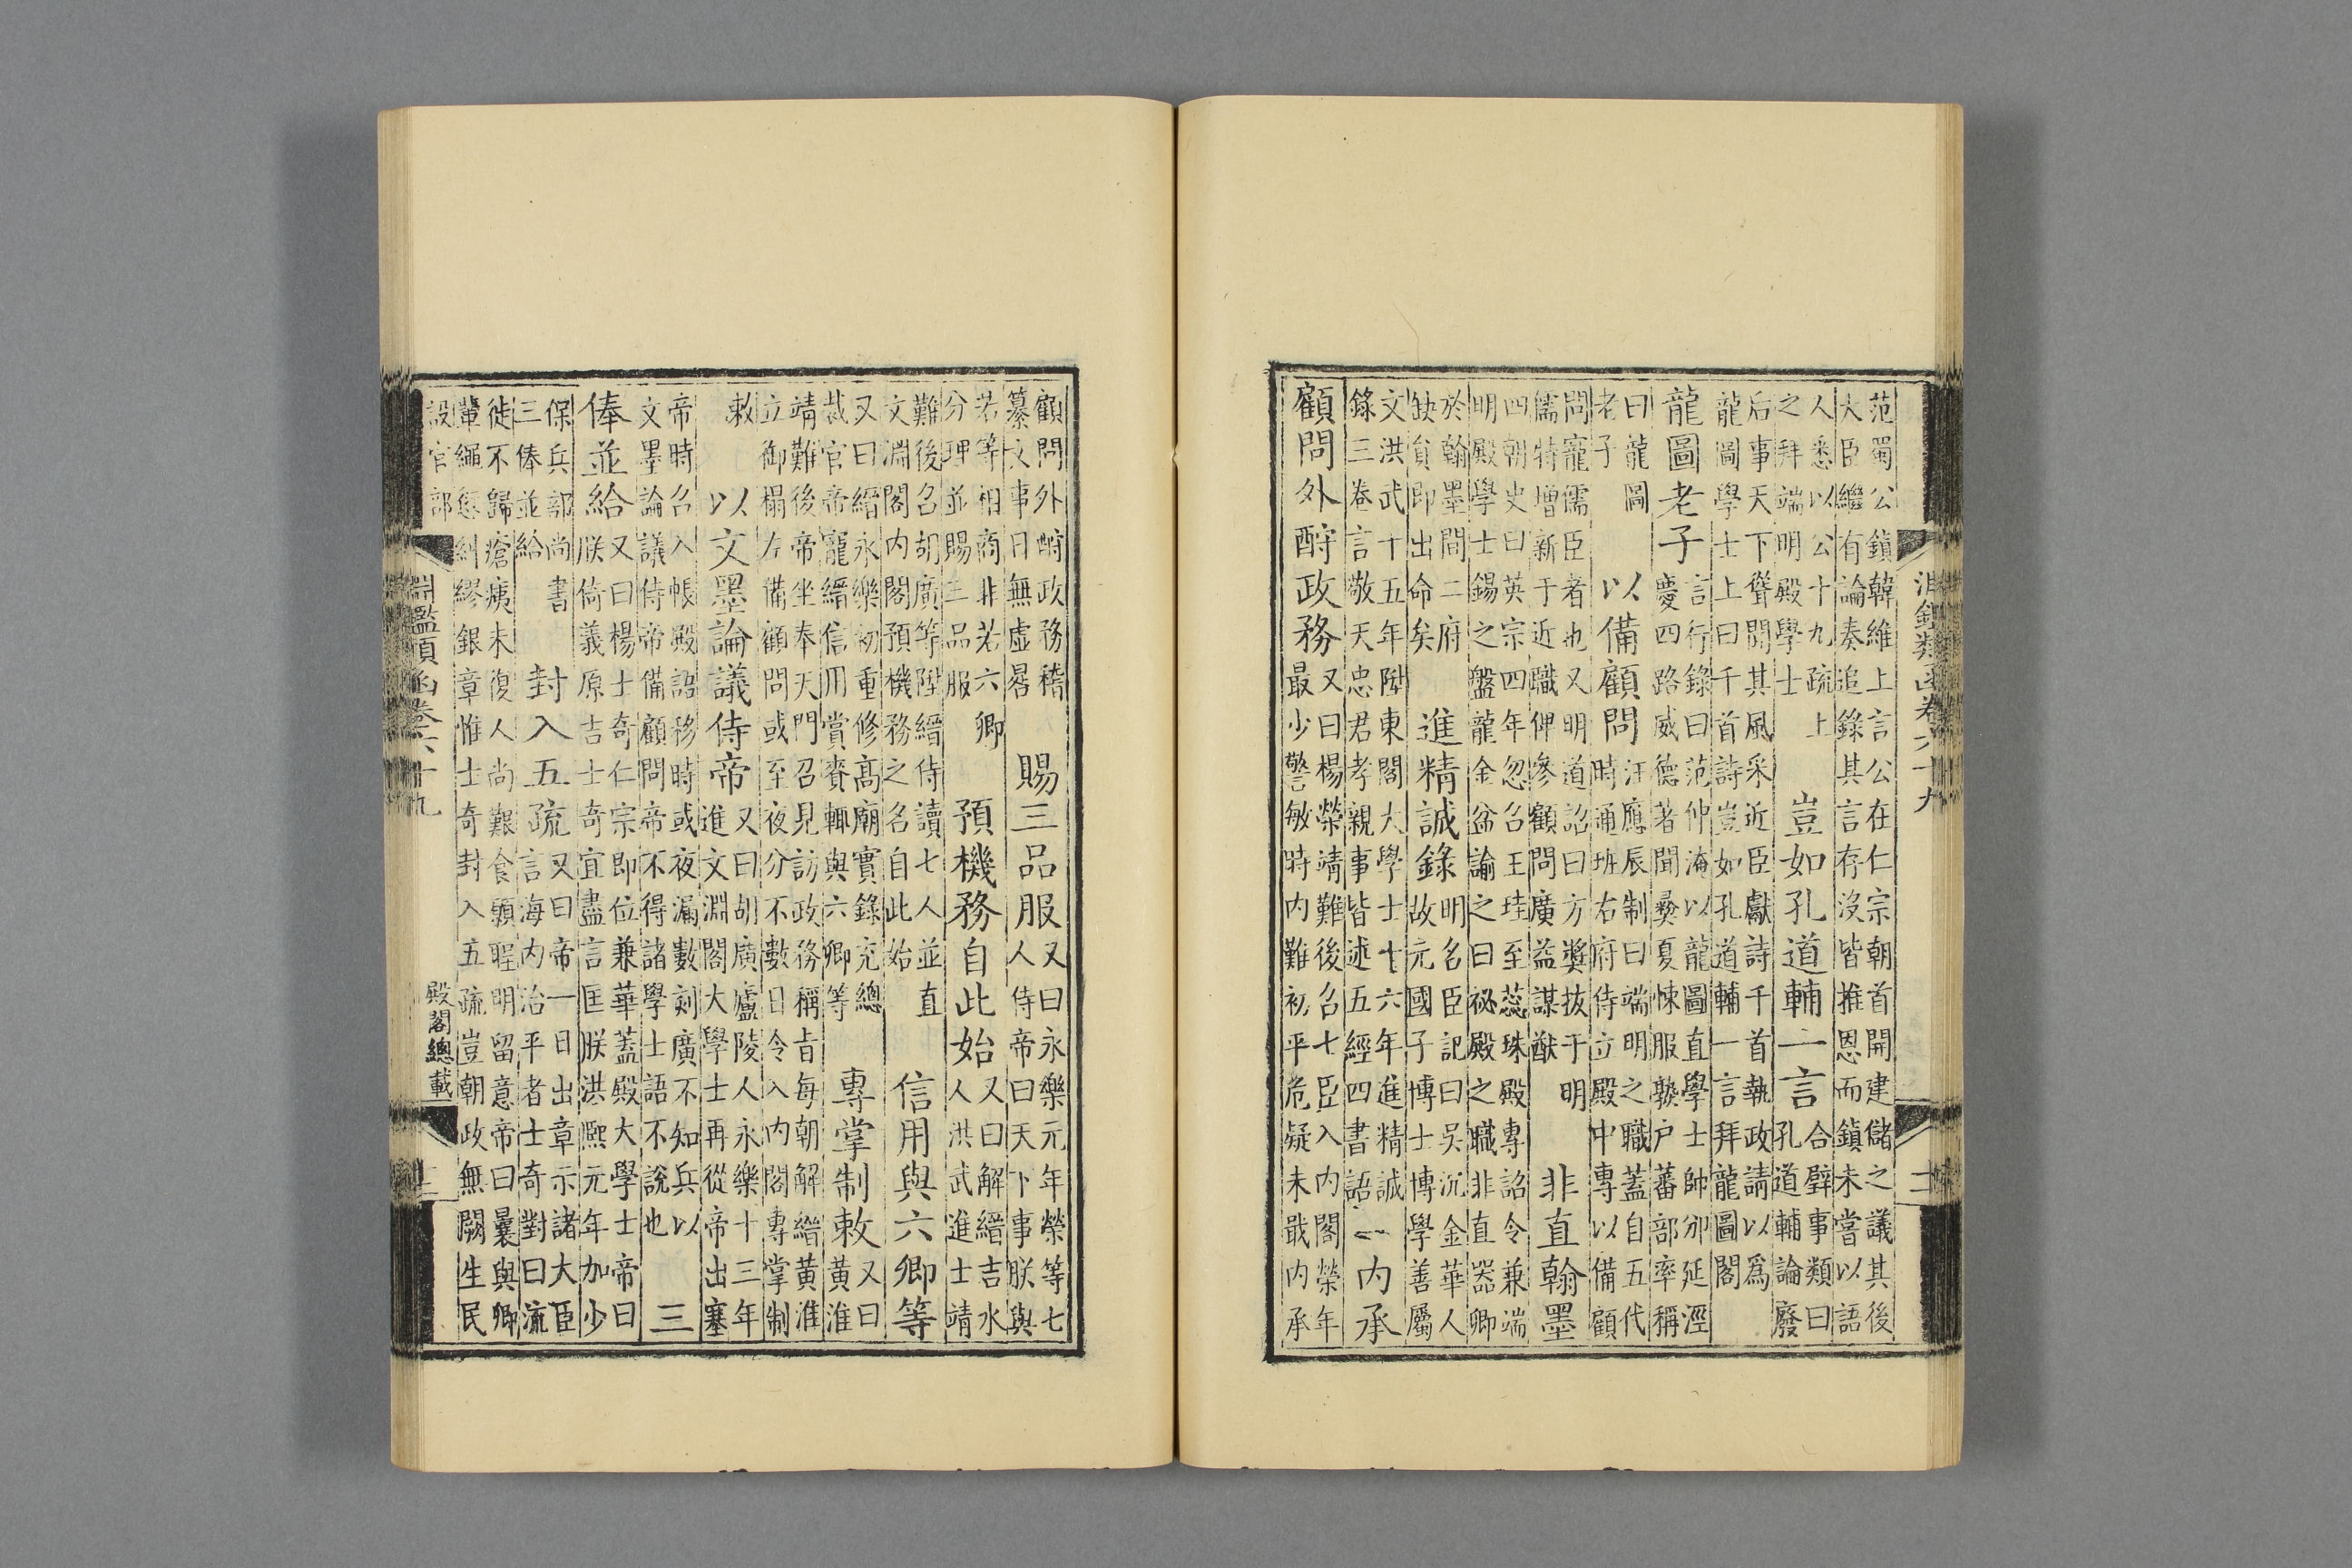 淵鑑類函卷六十九
范蜀公鎮韓維上言公在仁宗朝首開建儲之議其後
大臣繼有論奏追錄其言存沒皆推恩而鎮未嘗以語
人悉以公十九疏上
之拜端明殿學士
豈如孔道輔一言
合璧事類曰
孔道輔論廢
后事天下聳聞其風采近臣獻詩千首執政請以爲
龍圖學士上曰千首詩豈如孔道輔一言拜龍圖閣
龍圖老子
言行錄曰范仲淹以龍圖直學士帥邠延涇
慶四路威德著聞彝夏悚服户蕃部率稱
曰龍圖
老子
以備顧問
汪應辰制曰端明之職蓋自五代
時通班右府侍立殿中專以備顧
問寵儒臣者也又明道詔曰方奬拔于明
儒特增新于近職俾參顧問廣益謀猷
非直翰墨
四朝史曰英宗四年忽召王珪至蕊珠殿專詔令兼端
明殿學士錫之盤龍金盆諭之曰祕殿之職非直器卿
於翰墨間二府
缺貟即出命矣
進精誠錄
明名臣記曰吳沉金華人
故元國子博士博學善屬
文洪武十五年陞東閣大學士十六年進精誠
錄三卷言敬天忠君孝親事皆述五經四書語
内承
顧問外酧政務
又曰楊榮靖難後召七臣入内閣榮年
最少警敏時内難初平危疑未戢内承
顧問外酧政務稽
纂文事日無虚晷
賜三品服
又曰永樂元年榮等七
人侍帝曰天下事朕與
若等相商非若六卿
分理並賜三品服
預機務自此始
又曰解縉吉水
人洪武進士靖
難後召胡廣等陞縉侍讀七人並直
文淵閣内閣預機務之名自此始
信用與六卿等
又曰縉永樂初重修高廟實錄充總
裁官帝寵縉信用賞賚輒與六卿等
專掌制敕
又曰
黃淮
靖難後帝坐奉天門召見訪政務稱旨每朝解縉黃淮
立御榻左備顧問或至夜分不數日令入内閣專掌制
敕
以文墨論議侍帝
又曰胡廣盧陵人永樂十三年
進文淵閣大學士再從帝出塞
帝時召入帳殿語移時或夜漏數刻廣不知兵以
文墨論議侍帝備顧問帝不得諸學士語不說也
三
俸並給
又曰楊士奇仁宗即位兼華蓋殿大學士帝曰
朕倚義原吉士奇宜盡言匡朕洪熙元年加少
保兵部尚書
三俸並給
封入五疏
又曰帝一日出章示諸大臣
言海内治平者士奇對曰流
徙不歸瘡痍未復人尚艱食願聖明留意帝曰曩與卿
輩繩愆糾繆銀章惟士奇封入五疏豈朝政無闕生民
設官部
淵鑑類函卷六十九
殿閣總載